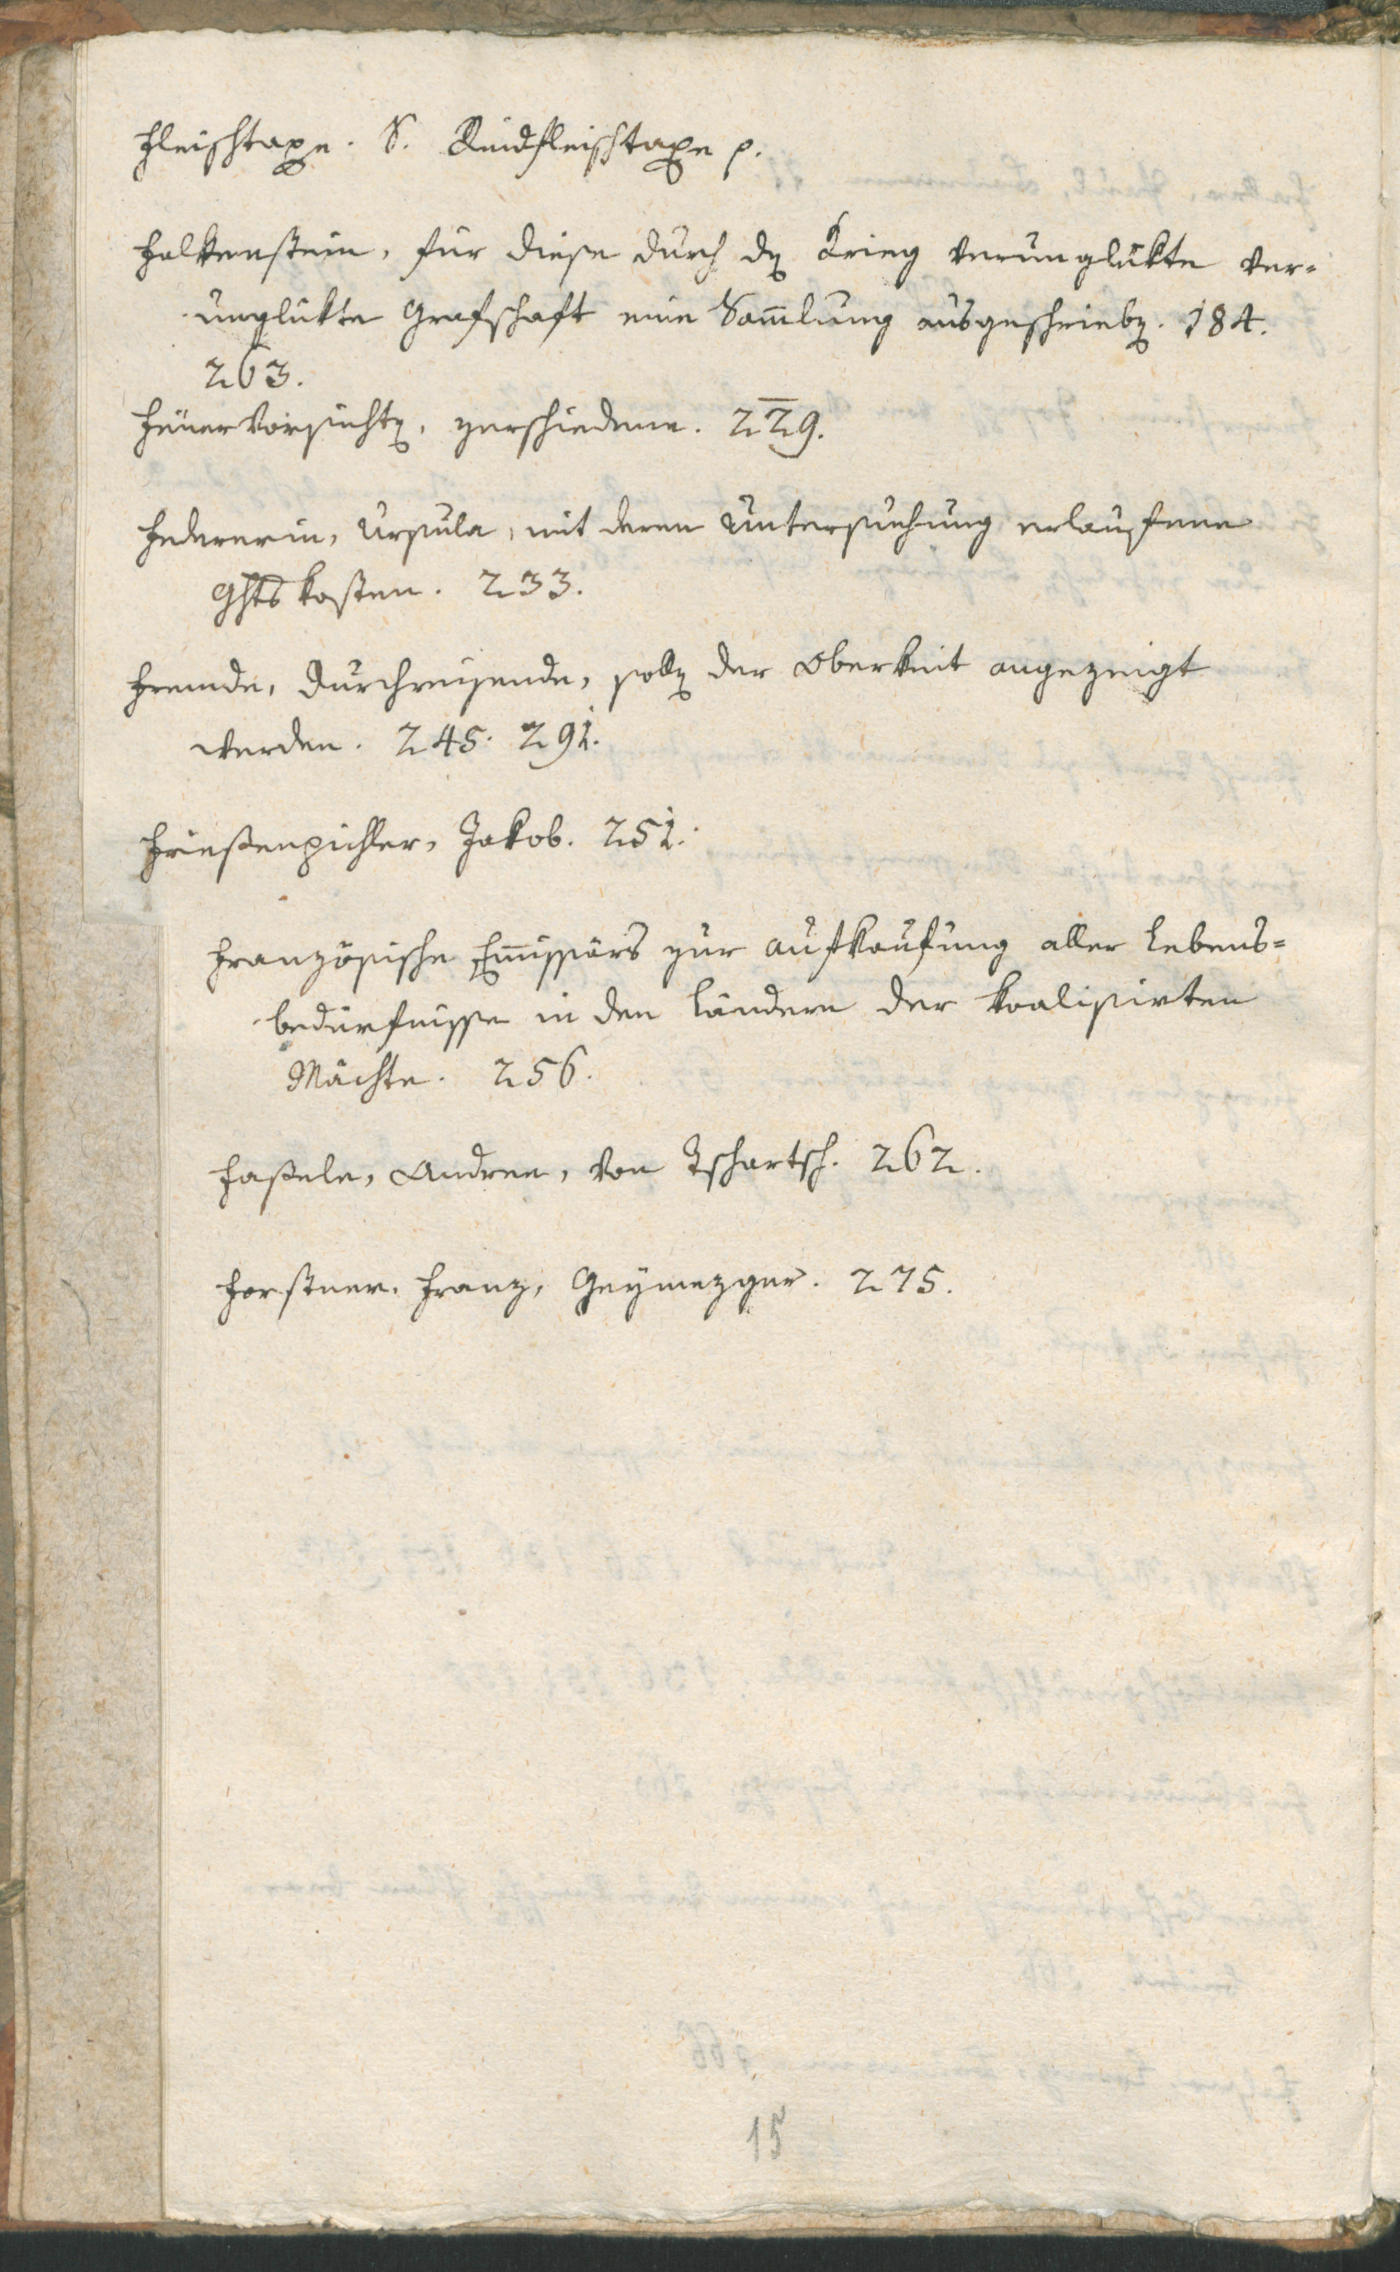 Fleischtaxe. S. Rindfleischtaxe p.
Falkenstein, für diese durch dẽ Krieg verunglükte ver-
unglükte Grafschaft eine Sam̄lung ausgeschriebẽ. 184.
263.
Feüervorsichtẽ, zerschiedene. 229.
Federerin, Ursula, mit deren Untersuchung erlaufene
Ghtskosten. 233.
Fremde, Durchreisende, sollẽ der Oberkeit angezeigt
werden. 245. 291.
Frießenpichler, Jakob. 251.
Französische Em̄issärs zur Aufkaufung aller Lebens-
bedürfnisse in den Ländern der koalisirten
Mächte. 256.
Faßele, Andree, von Tschartsch. 262.
Forstner, Franz, Geymezger. 275.
15